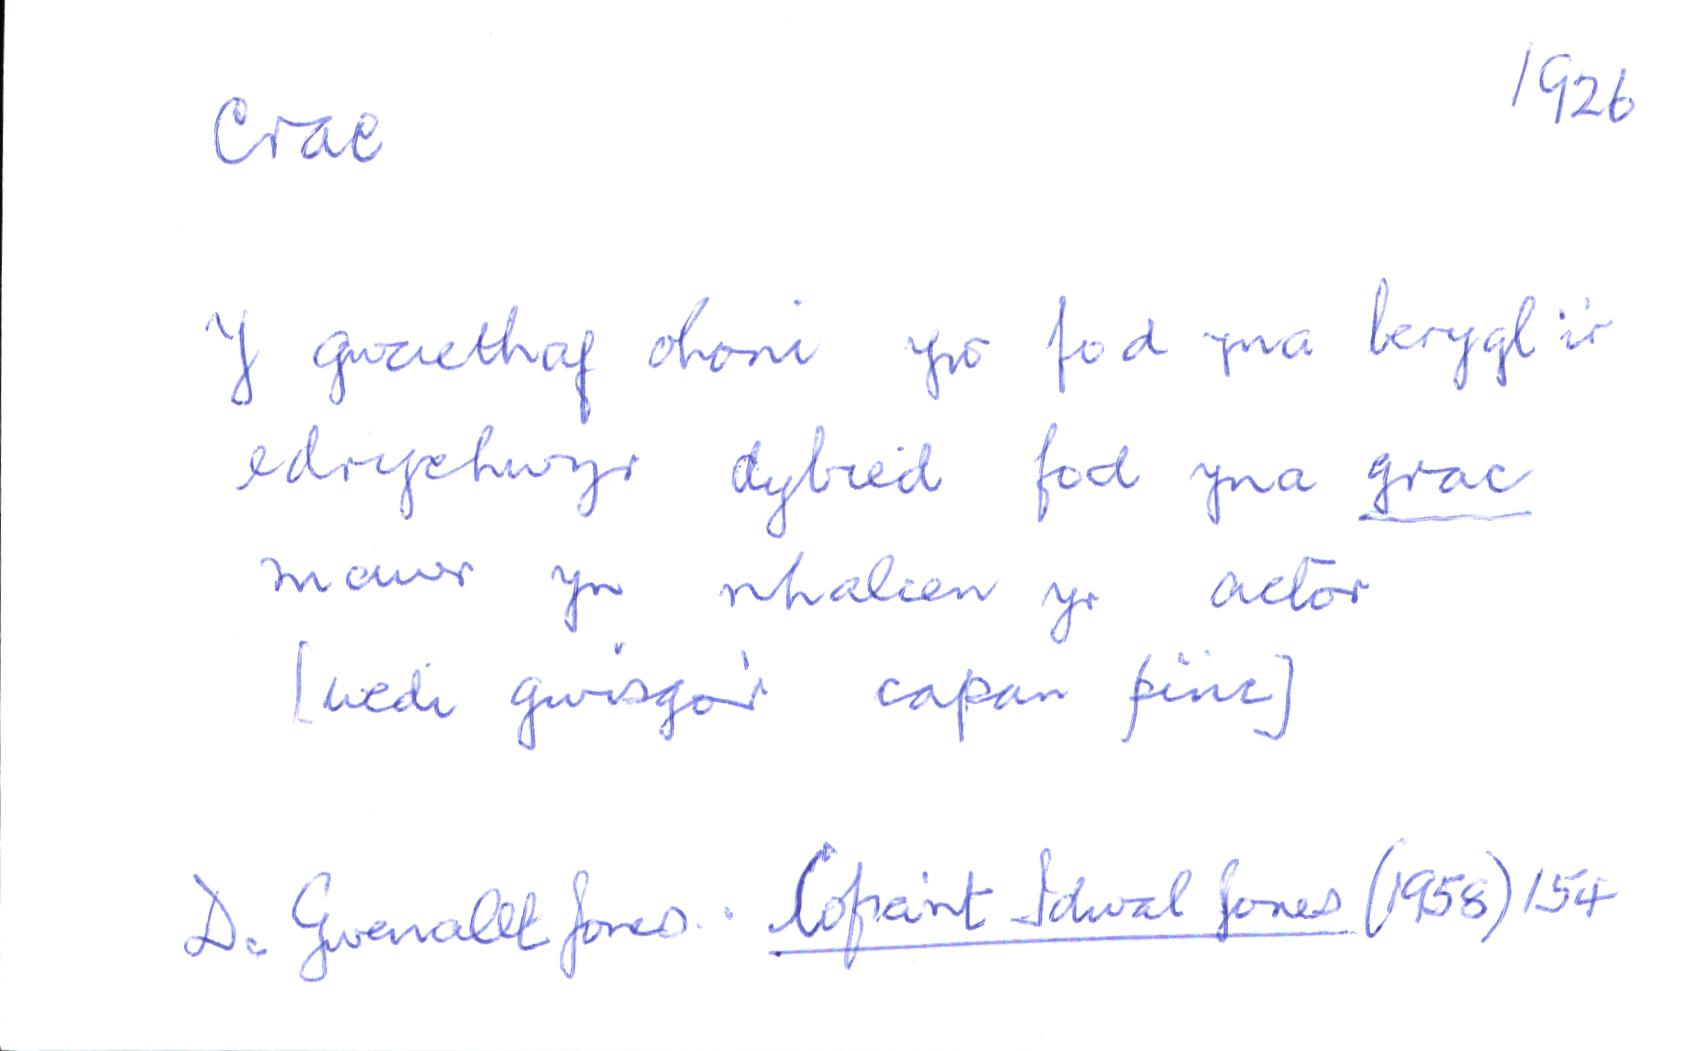 Crac
1926
Y gwaethaf ohoni yw fod yna berygl i'r
edrychwyr dybied fod yna grac
mawr yn nhalcen yr actor
[wedi gwisgo'r capan pinc]
D. Gwenallt Jones. Cofiant Idwal Jones (1958) 154